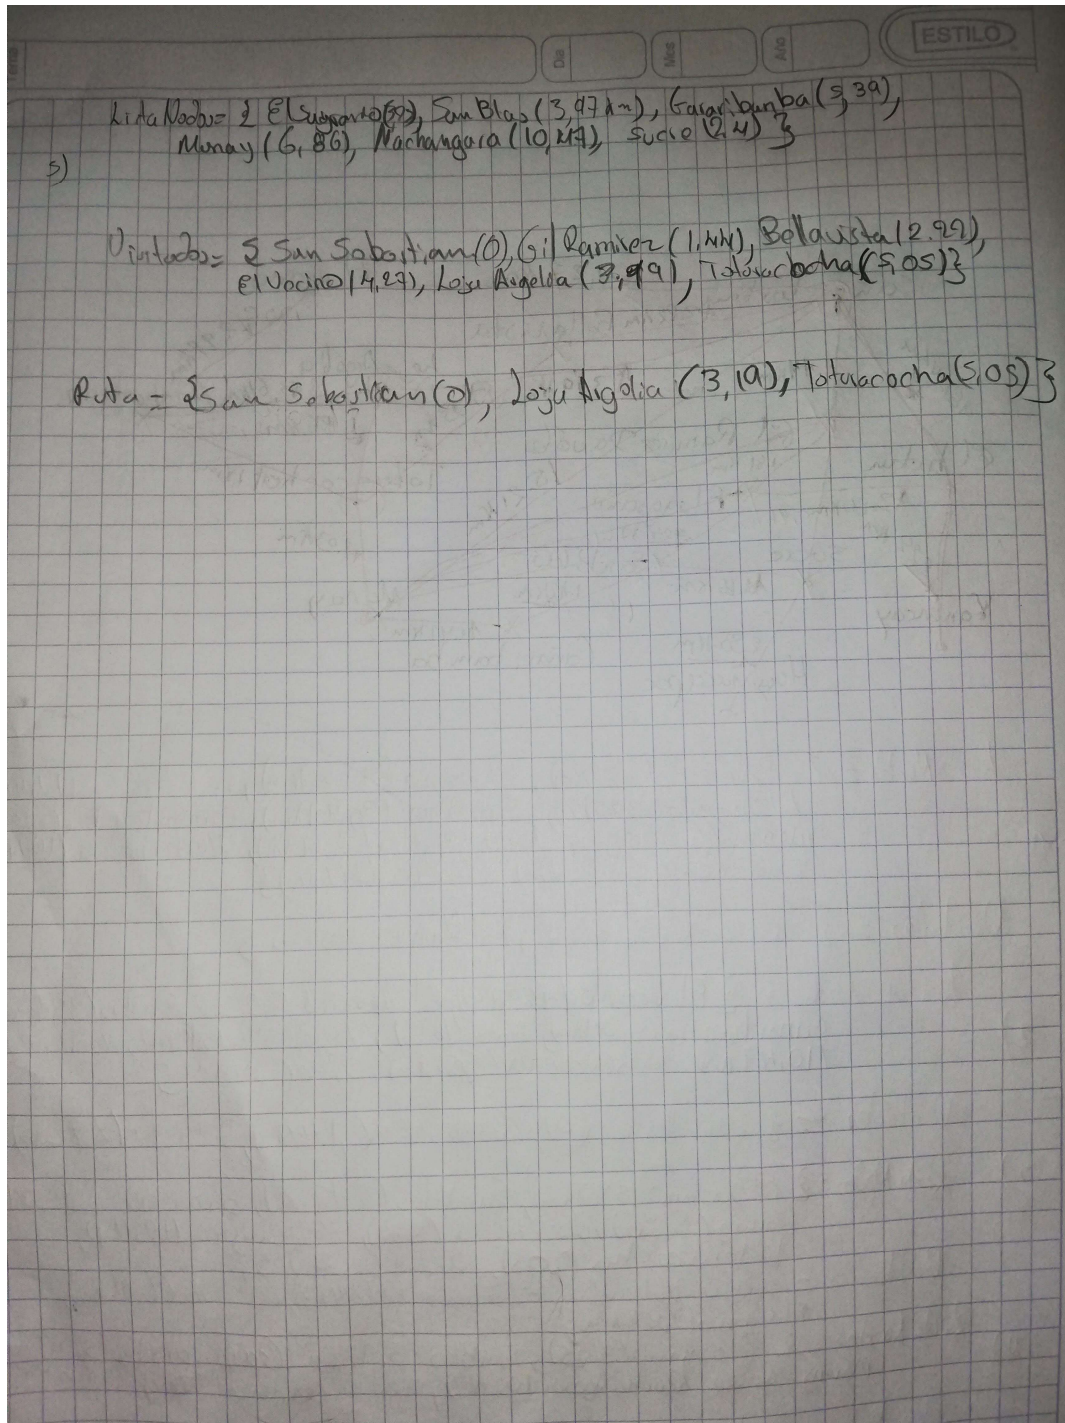 ESTILO
Día Mes Año
ListaNodos= { El Sagrario(), San Blas (3,97km), Gararibanba(5,39),
Monay(6,86), Machangara(10,47), Sucre(2,4) }
5)
Visitados= { San Sebastian(0), Gil Ramirez(1,44), Bellavista(2.92),
El Vecino(4,27), Loja Argelia(3,99), Totoracocha(5,05)}
Ruta = {San Sebastian(0), Loja Argelia (3,19), Totoracocha(5,05) }